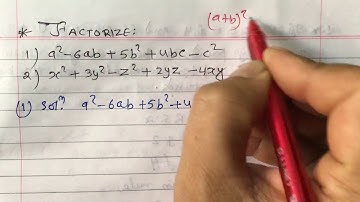 (a+b)²
* FACTORIZE:
1) a²-6ab+5b²+4bc-c²
2) x²+3y²-z²+2yz-4xy
(1) Solⁿ. a²-6ab+5b²+4